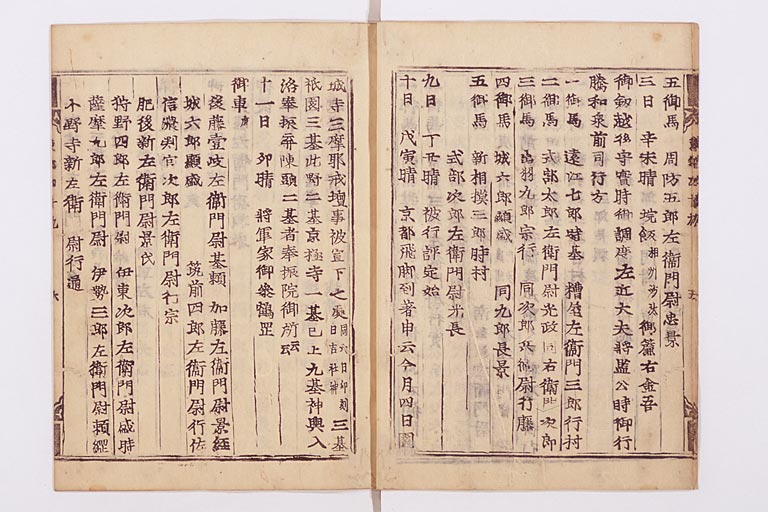 五御馬 周防五郎左衛門尉忠景
三日 辛未晴 垸飯相州御沙汰 御簾右金吾
御釼越後守實時御調度左近大夫將監公時御行
騰和泉前司行方
一御馬 遠江七郎時基 糟屋左衛門三郎行村
二御馬 式部太郎左衛門尉光政 同右衛門次郎
三御馬 出羽九郎宗行 同次郎兵衛尉行藤
四御馬 城六郎顯盛 同九郎長景
五御馬 新相摸三郎時村
式部次郎左衛門尉光長
九日 丁丑晴 被行評定始
十日 戊寅晴 京都飛脚到著申云今月四日園
城寺三摩耶戒壇事被宣下之處同六日卯刻日吉社神 三基
祇園三基北野二基京極寺一基已上九基神輿入
洛奉振弃陣頭二基者奉振院御所云云
十一日 卯晴 將軍家御參鶴罡
御車
遠藤壹岐左衛門尉基頼 加藤左衛門尉景經
城六郎顯盛 筑前四郎左衛門尉行佐
信濃判官次郎左衛門尉行宗
肥後新左衛門尉景氏
狩野四郎左衛門尉 伊東次郎左衛門尉盛時
薩摩九郎左衛門尉 伊勢三郎左衛門尉頼綱
小野寺新左衛 尉行通